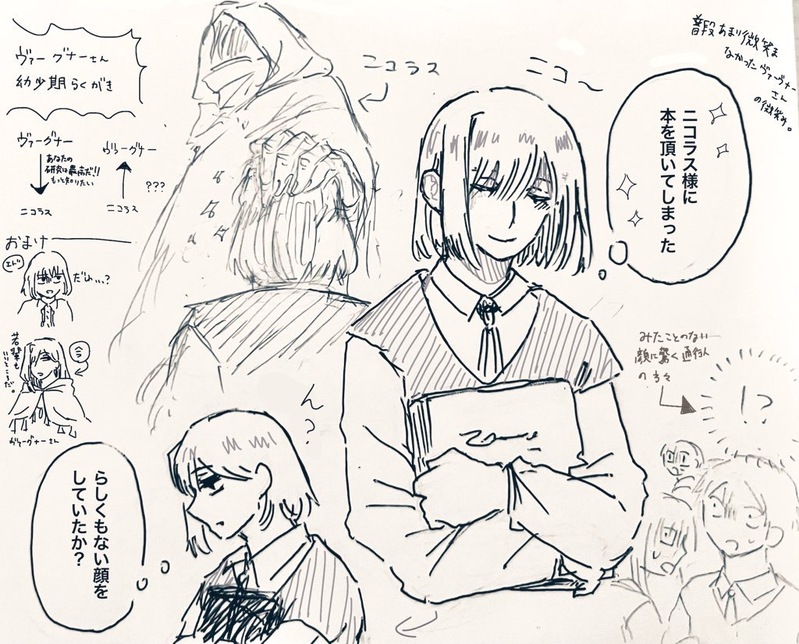 ヴァーグナーさん
幼少期らくがき
ヴァーグナー
あなたの
研究は最高だ!!
もっと知りたい
ニコラス
ヴァーグナー
ニコラス
???
おまけ
だれ…?
若輩も
いいところだ。
ヴァーグナーさん
ニコラス
ニコ〜
普段あまり微笑ま
なかったヴァーグナー
さん
の微笑み。
ニコラス様に
本を頂いてしまった
みたことのない
顔に驚く通行人
の方々
!?
ん?
らしくもない顔を
していたか?